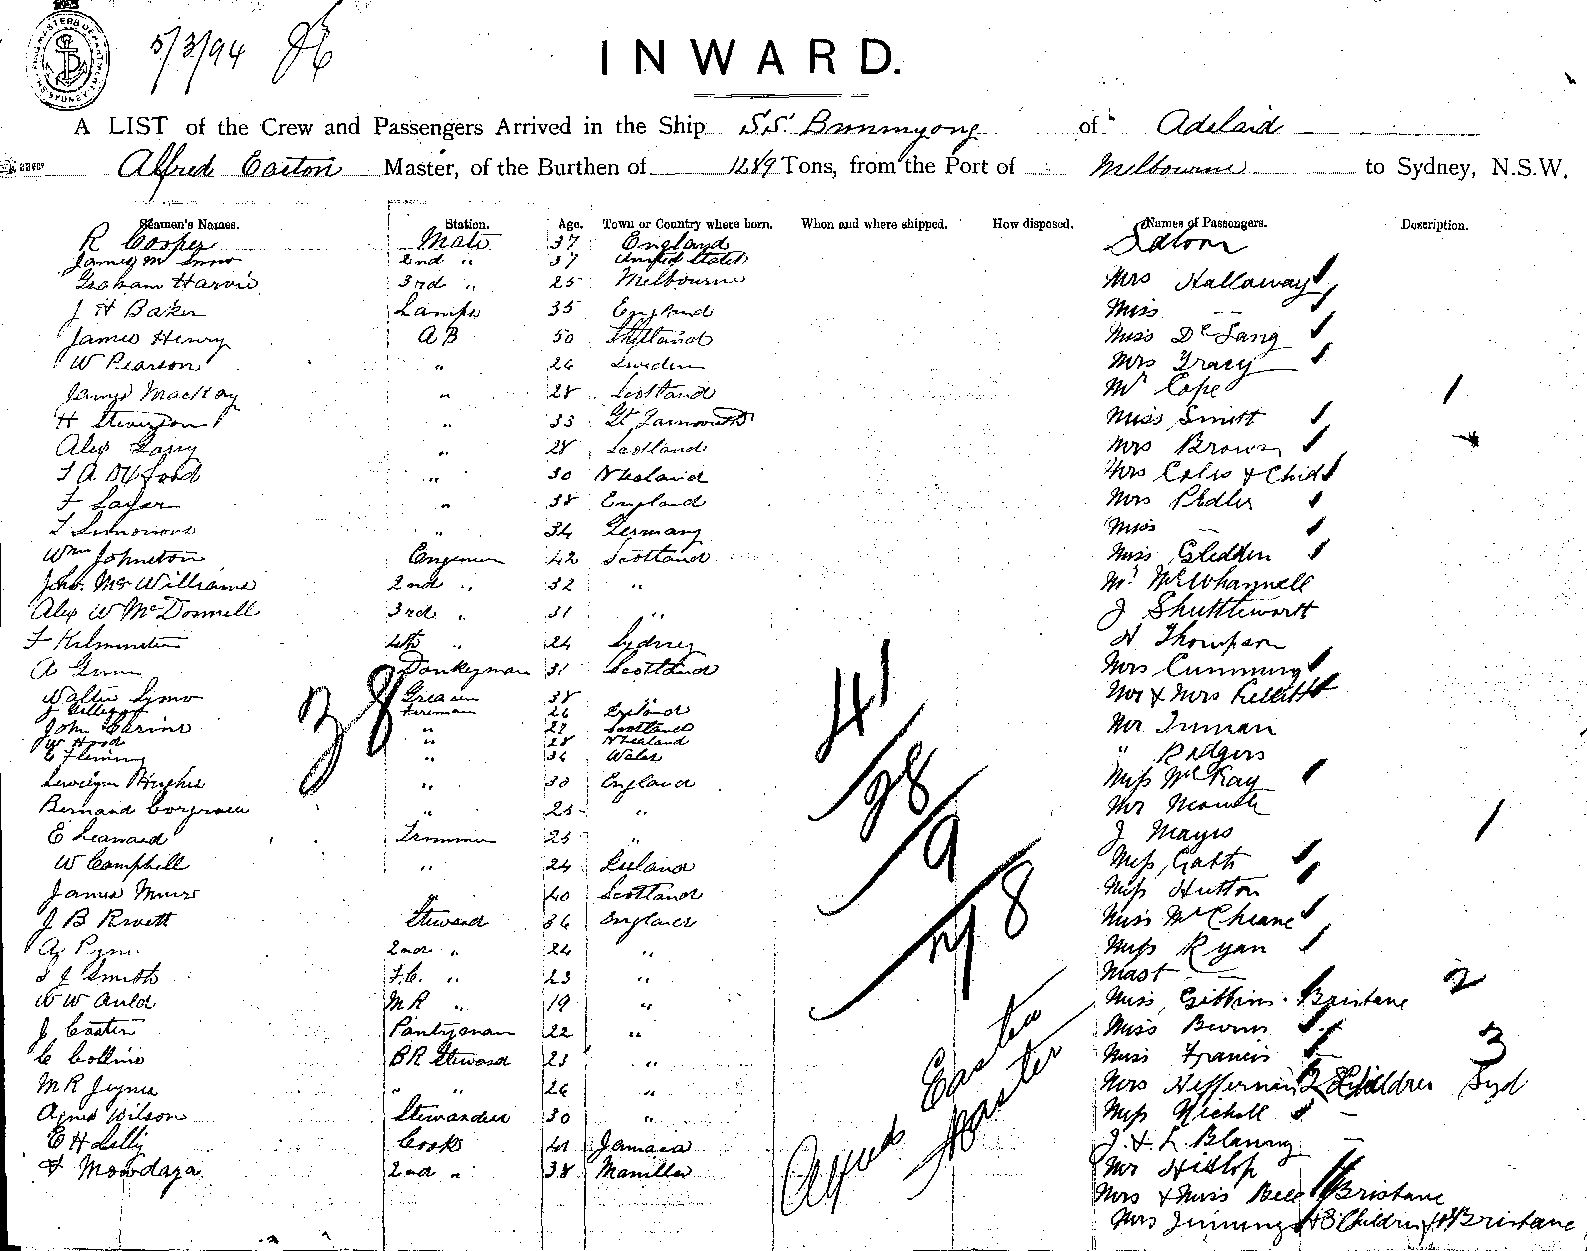 5/3/94
INWARD.
A LIST of the Crew and Passengers Arrived in the Ship S.S. Bunninyong of Adelaid
Alfred Easton Master, of the Burthen of 1289 Tons, from the Port of Melbourne to Sydney, N.S.W.
Seamen's Names. Station. Age. Town or Country where born. When and where shipped. How disposed. Names of Passengers. Description.
R Cooper Mate 37 England Saloon
James M Snow 2nd " 37 United States
Graham Harvie 3rd " 25 Melbourne Mrs Hallaway
J H Baker Lamps 35 England Miss —
James Henry AB 50 Shetland Miss De Lang
W Pearson " 26 Sweden Mrs Tracy
James Mackay " 28 Scotland Mr Cope 1
H " 33 Gt Yarmouth Miss Smith
Alex " 28 Scotland Mrs Brown
" 30 N Zealand Mrs Coles & Child
F " 38 England Mrs Pedler
" 34 Germany Miss —
Wm Johnston Engineer 42 Scotland Miss Gledden
Jno. McWilliams 2nd " 32 " Mr McWhannell
Alex W McDonnell 3rd " 31 " J Shuttleworth
F Kilminster 4th " 24 Sydney H Thompson
A Donkeyman 31 Scotland Mrs Cumming
Walter 38 Mr & Mrs
J Gilligan Fireman 26 Ireland
John " 27 Scotland Mr Inman
W Hood " 28 N Zealand
C Fleming " 36 Wales " Rodgers
Llewelyn Hughes " 30 England Miss McKay
Bernard Corgrave " 25 " Mr
E Leonard Trimmer 25 " J Mayes 1
W Campbell " 24 Ireland Miss Gatti
James Muir " 40 Scotland Miss Hutton
J B Rivett Steward 36 England Miss
2nd " 24 " Miss Ryan
S J Smith F.C. " 23 " Mast — 2
W W Auld M R " 19 " Miss Gibbins Brisbane
J Easton Pantryman 22 " Miss
C Collins B R Steward 23 " Miss Francis 3
M R Joyner " " 26 " Mrs Heffernan 2 Children Syd
Agnes Wilson Stewardess 30 " Miss Nicholl
E H Lilly Cook 41 Jamaca J & L
2nd " 38 Manilla Mr Hislop
Mrs & Miss Bell Brisbane
Mrs Jennings & 3 Children Brisbane
38
41
38
9
78
Alfred Easton
Master